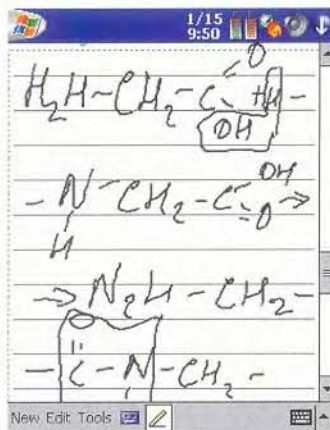 1/15
9:50
O
H₂H-CH₂-C +H-
OH
-N-CH₂-C OH
O →
H
→ N₂H-CH₂-
O
-C-N-CH₂-
New Edit Tools